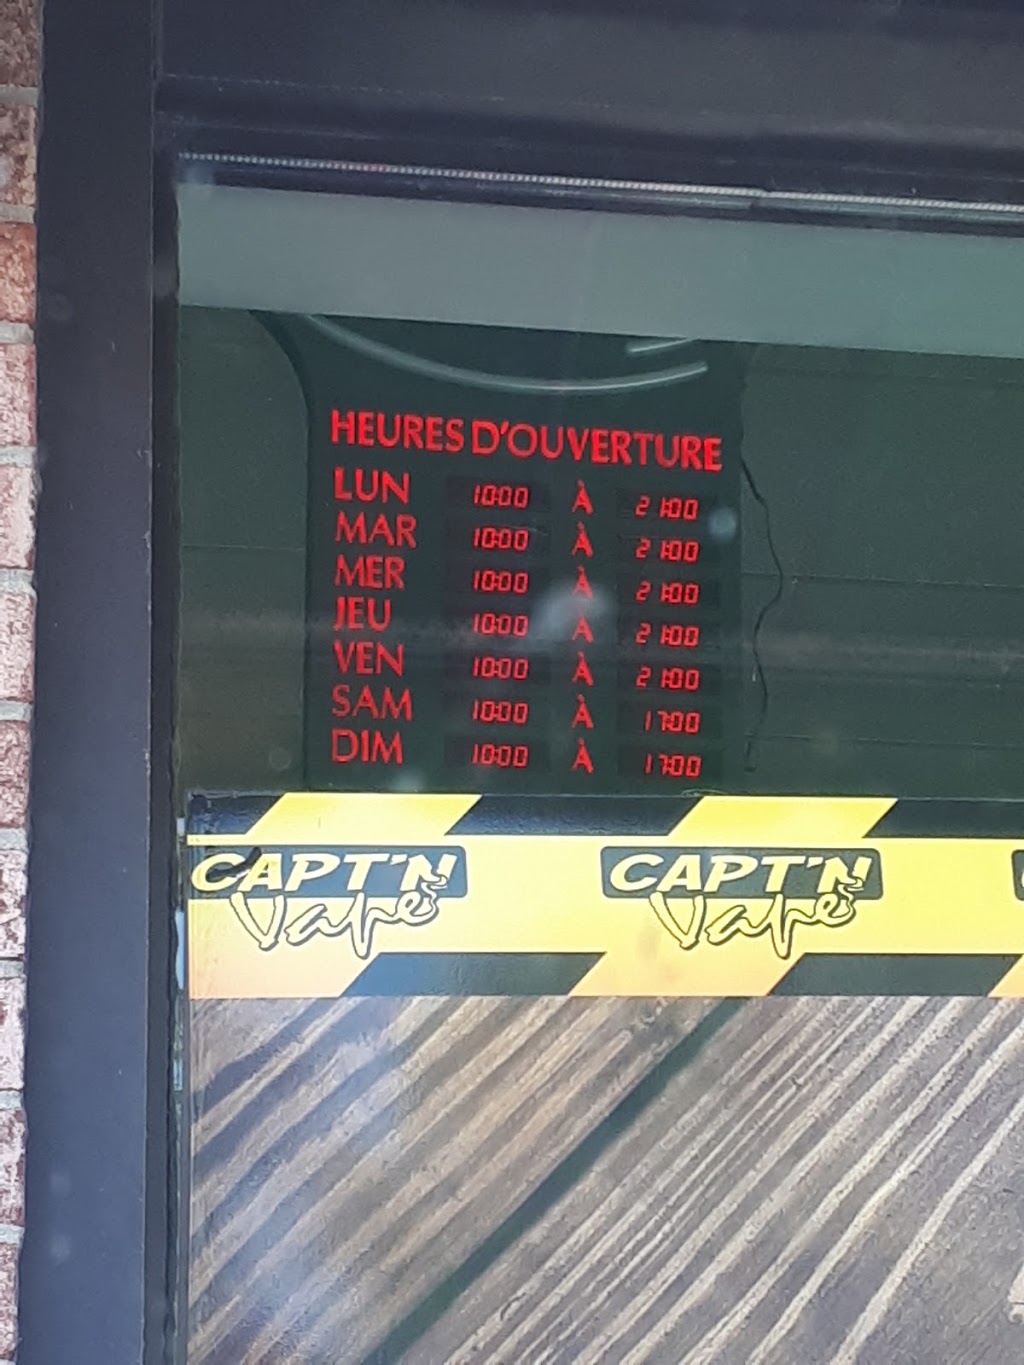 HEURES D'OUVERTURE
LUN 10:00 À 21:00
MAR 10:00 À 21:00
MER 10:00 À 21:00
JEU 10:00 À 21:00
VEN 10:00 À 21:00
SAM 10:00 À 17:00
DIM 10:00 À 17:00
CAPT'N CAPT'N
Vape Vape